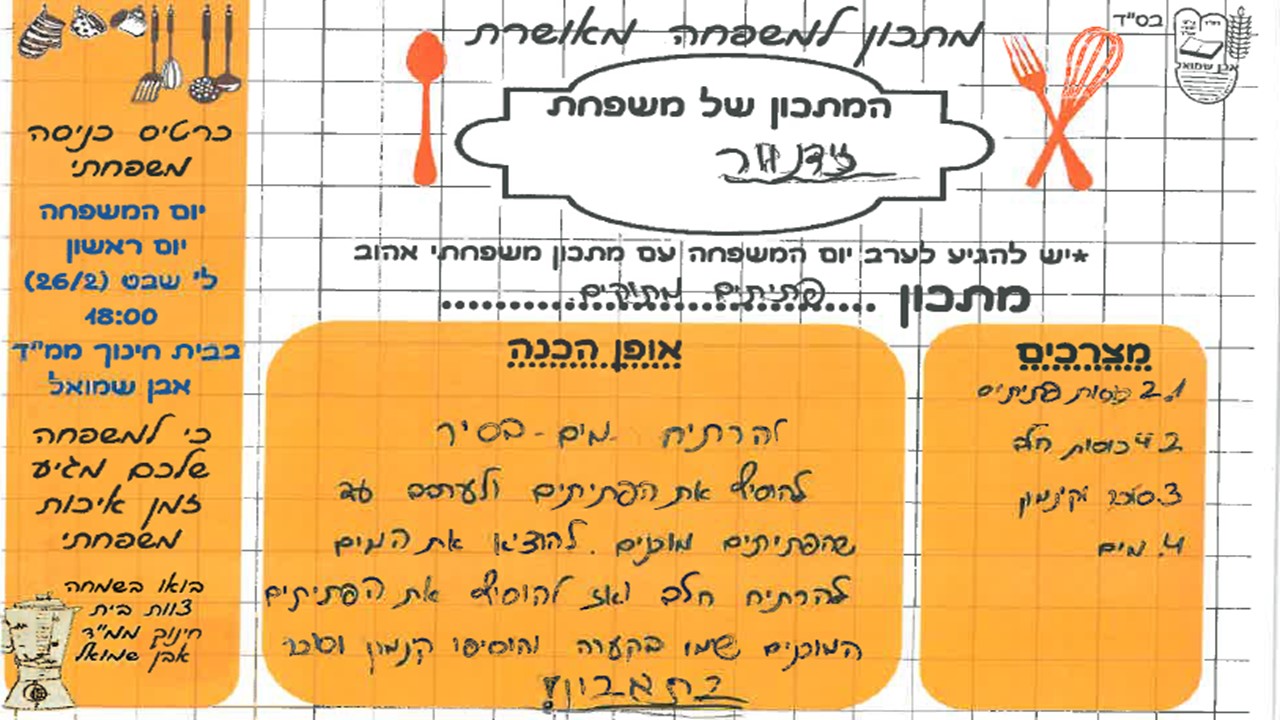 בס"ד
אבן שמואל
מתכון למשפחה מאושרת
המתכון של משפחת
*יש להגיע לערב יום המשפחה עם מתכון משפחתי אהוב
מתכון פתיתים מתוקים
מצרכים
1. 2 כוסות פתיתים
2. 4 כוסות חלב
3. סוכר וקינמון
4. מים
אופן הכנה
להרתיח מים בסיר
להוסיף את הפתיתים ולערבב עד
שהפתיתים מוכנים. להוציא את המים
להרתיח חלב ואז להוסיף את הפתיתים
המוכנים שימו בקערה והוסיפו קנמון וסוכר
בתאבון!
כרטיס כניסה
משפחתי
יום המשפחה
יום ראשון
ל' שבט (26/2)
18:00
בבית חינוך ממ"ד
אבן שמואל
כי למשפחה
שלכם מגיע
זמן איכות
משפחתי
בואו בשמחה
צוות בית
חינוך ממ"ד
אבן שמואל